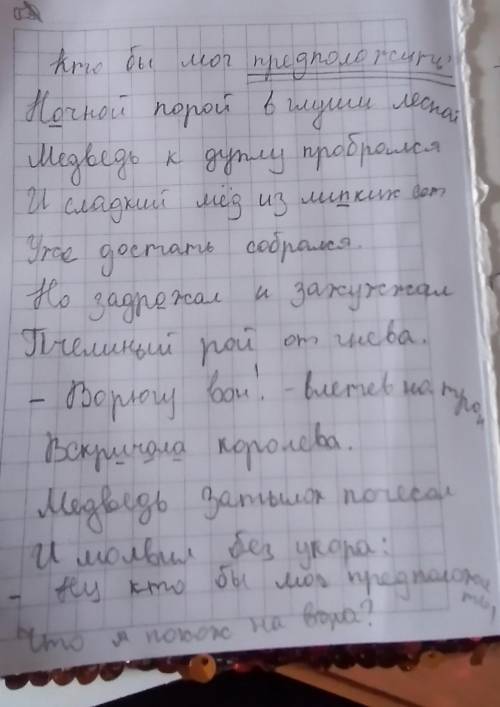 Кто бы мог предположить
Ночной порой в глуши лесной
Медведь к дуплу пробрался
И сладкий мёд из липких сот
Уже достать собрался.
Но задрожал и зажужжал
Пчелиный рой от гнева.
- Ворюгу вон! - влетев на трон,
Вскричала королева.
Медведь затылок почесал
И молвил без укора:
- Ну кто бы мог предположить,
Что я похож на вора?